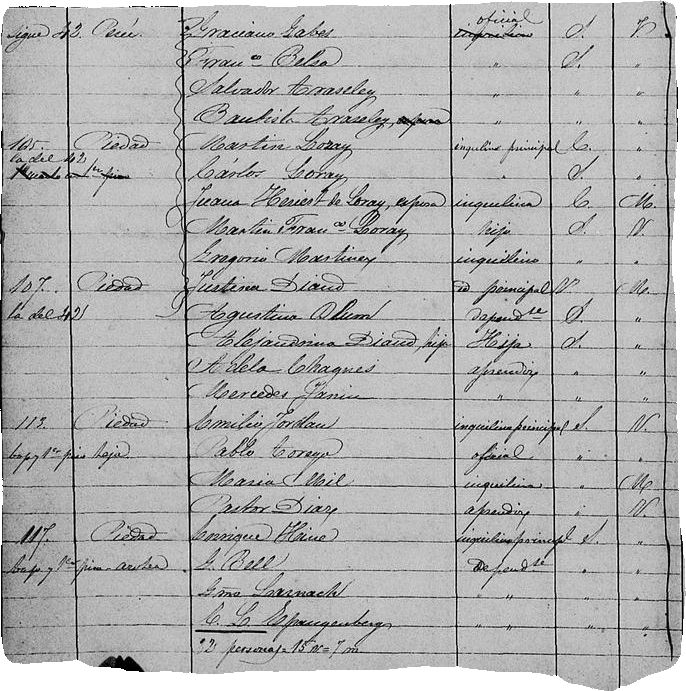 sigue 42. Perú. Graciano Gabes oficial S. V.
Fran.co Belsa " S. "
Salvador Araseley " " "
Bautista Araseley, " " "
105. Piedad Martin Loray inquilino principal C. "
la del 42 Cárlos Loray " S. "
Juana de Loray, esposa inquilina C. M.
Martin Fran.co Loray hijo S. V.
Gregorio Martinez inquilino " "
107. Piedad Justina Diaud id principal V. M.
la del 42 Agustina depend.te S. "
Alejandrina Diaud, hija Hija S. "
Adela Chagnes aprendiz " "
Mercedes Janin " " "
113. Piedad Emilio Jordan inquilino principal S. V.
Pablo oficial " "
Maria Mil inquilina " M.
Pastor Diaz aprendiz " V.
117. Piedad Enrique Haine inquilino principal S. "
G. Bell Depend.te " "
Gmo Larnach " " "
C. L. Spangenberg " " "
22 personas = 15 v = 7 m